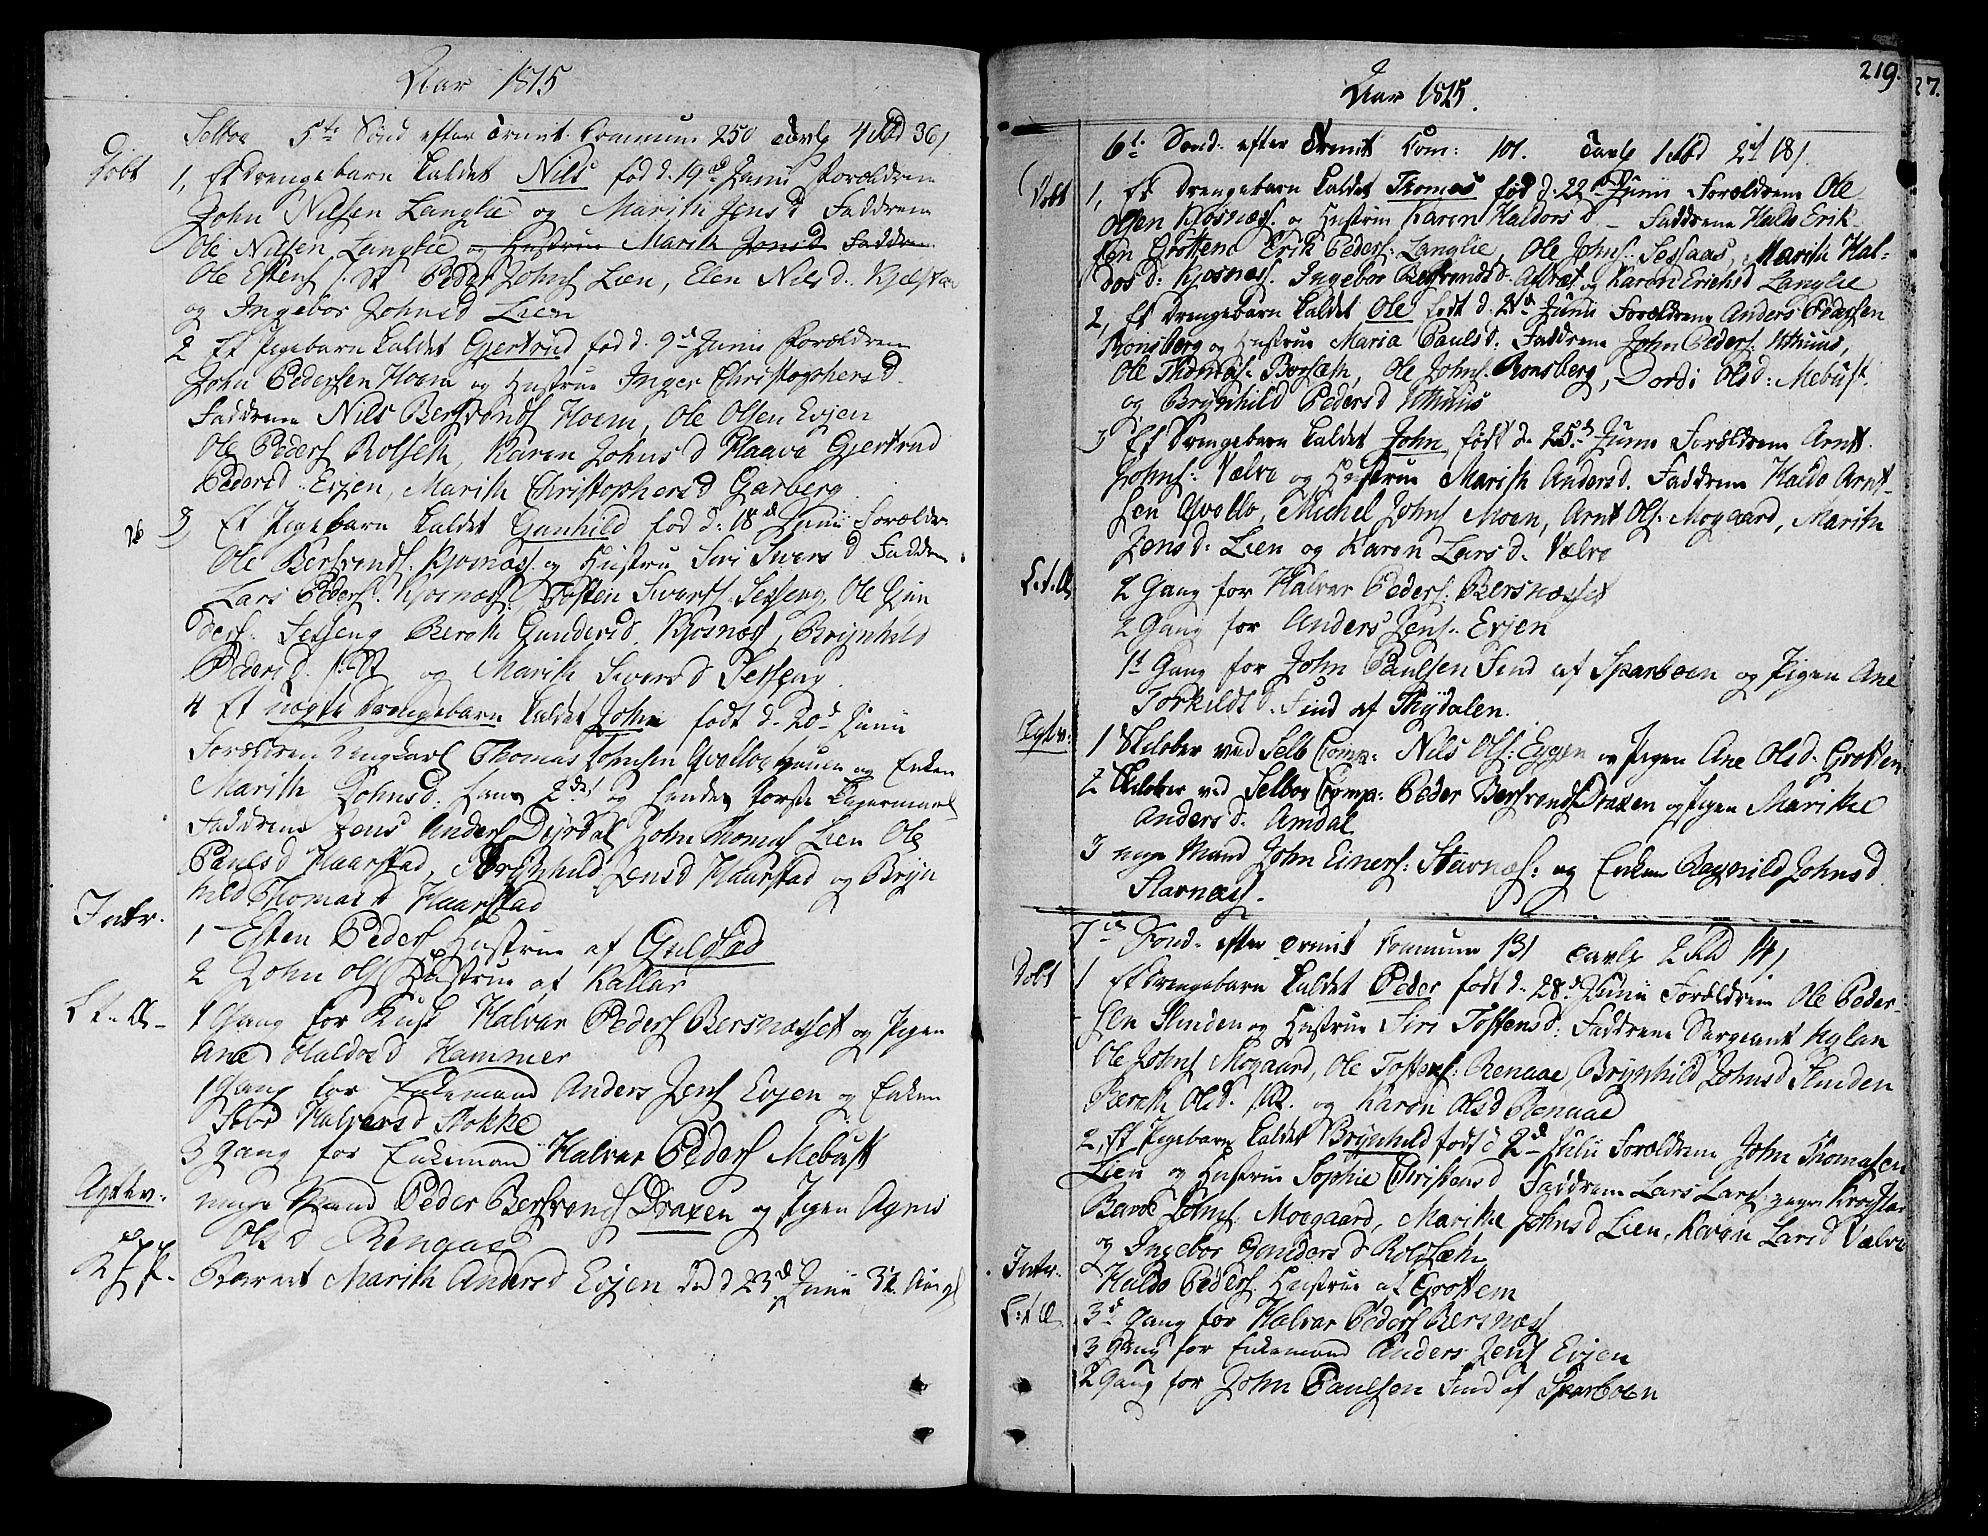 Aar 1815
Selboe 5te Sønd efter Trinit. Commun: 250 Tavle 4 Rd 36
Døbt
1, Et Drengebarn kaldet Nils fød d. 19d Junii Forældrene
John Nilsen Langlie og Marith Jensd Faddrene
Ole Nilsen Langlie og Hustrue Marith Jonsd Faddrene
Ole Estens s: St Peder Johns Lien, Elen Nilsd.
og Ingebor Johnsd Lien
2 Et Pigebarn kaldet Gjertrud fød d. 9d Junii Forældrene
John Pedersen Hoem og Hustrue Inger Christophersd.
Faddrene Nils Bersvends Hoem, Ole Olsen Evjen
Ole Peders Rolseth, Karen Johnsd Haave Gjertrud
Pedersd. Evjen, Marith Christophersd Garberg.
3, Et Pigebarn kaldet Gunhild fød d: 18d Junii Forældre
Ole Bersvends. Kjosnæs. og Hustru Siri Iversd Faddre
Lars Peders. Kjosnæs. Tosten Iverss. Sesseng, Ole Gun
ders: Sesseng Bereth Gundersd. Kjosnæs, Brynhild
Pedersd. s: St og Marith Iversd Sesseng.
4 Et uægte Drengebarn kaldet John født d. 20d Junii
Forældren Ungkarl Thomas Johnsen og Enken
Marith Johnsd: hans 2det og hendes første Leyermaal
Faddrene Jens Anders Dyrdal John Thomas Lien Ole
Paulsd Haarstad, Brynhild Jensd Haarstad og Bryn
hild Thomasd Haarstad
Intr.
1 Esten Peders Hustrue af Guldsæd
2 John Ols Hustrue af Kallar
L. t. Æ.
1 Gang for Kusk Halvar Peders Bersnæsset og Pigen
Ane Haldosd Hammer
1 Gang for Enkemand Anders Jens Evjen og Enken
Halvarsd Stokke
3 Gang for Enkemand Halvar Peders Mebust
Ægtev.
unge Mand Peder Bersvends Draxen og Pigen Agnis
Olsd Rengaae
Barnet Marith Andersd Evjen død d 23d Junii
219.
27.
Aar 1815.
6te Sønd: efter Trinit Com: 101. Tavle 1 Rd 2 18
Døbt
1, Et Drengebarn kaldet Thomas fød d. 22d Junii Forældrene Ole
Olsen Kjosnæs. og Hustrue Karen Haldorsd - Faddrene Haldo Erik
sen Grøttem Erik Peders: Langlie, Ole Johns: Sesaas, Marith Hal-
dosd: Kjosnæs. Ingebor Bersvendsd. og Karen Erichsd Langlie
2, Et Drengebarn kaldet Ole født d. 21d Junii Forældrene Anders Pedersen
Rønsberg og Hustrue Maria Paulsd. Faddrene John Peders: Uthuus,
Ole Thomas: Borseth, Ole Johns: Rønsberg, Dordi Olsd: Mebust.
og Brynhild Pedersd Uthuus
3 Et Drengebarn kaldet John født d. 25d Junii Forældrene Arnt
Johns: Vælve og Hustrue Marith Andersd. Faddrene Haldo Arnt-
sen Qvello, Michel Johns Moen, Arnt Ols: Mogaard, Marith
Jensd: Lien og Karen Larsd. Vælve
L. t. Æ.
2 Gang for Halvar Peders: Bersnæsset
2 Gang for Anders Jens: Evjen
1t Gang for John Paulsen Find af Sparboen og Pigen Ane
Torkildsd. Find af Thydalen.
Ægtev:
1 Skilober ved Selb Comp: Nils Ols: Evjen og Pigen Ane Olsd. Grøttem
2 Skilober ved Selboe Comp: Peder Bersvends Draxen og Pigen Marithe
Andersd. Amdal
3 unge Mand John Einers: Stavnæs: og Enken Ragnild Johnsd
Stavnæs.
7de Sønd. efter Trinit Commun 131 Tavle 2 Rd 14
Døbt
1 Et Drengebarn kaldet Peder født d. 28d Junii Forældrene Ole Peder-
sen Slinden og Hustrue Siri Tostensd: Faddrene Sergeant Uglan
Ole Johns Mogaard, Ole Tostens: Renaae, Brynhild Johnsd Slinden
Bereth Olsd. s: St. og Karen Olsd Renaae
2, Et Pigebarn kaldet Brynhild født d 2d Julii Forældrene John Thomasen
Lien og Hustrue Sophie Christensd Faddrene Lars Lars:
Baroe Johns: Moegaard, Marithe Johnsd Lien, Karen Larsd Vælve
og Ingebor Gundersd. Rolseth
Intr.
Haldo Peders. Hustrue af Grøttem
L. t. Æ
3d Gang for Halvar Peders Bersnæs
3 Gang for Enkemand Anders Jens Evjen
2 Gang for John Paulsen Find af Sparboen